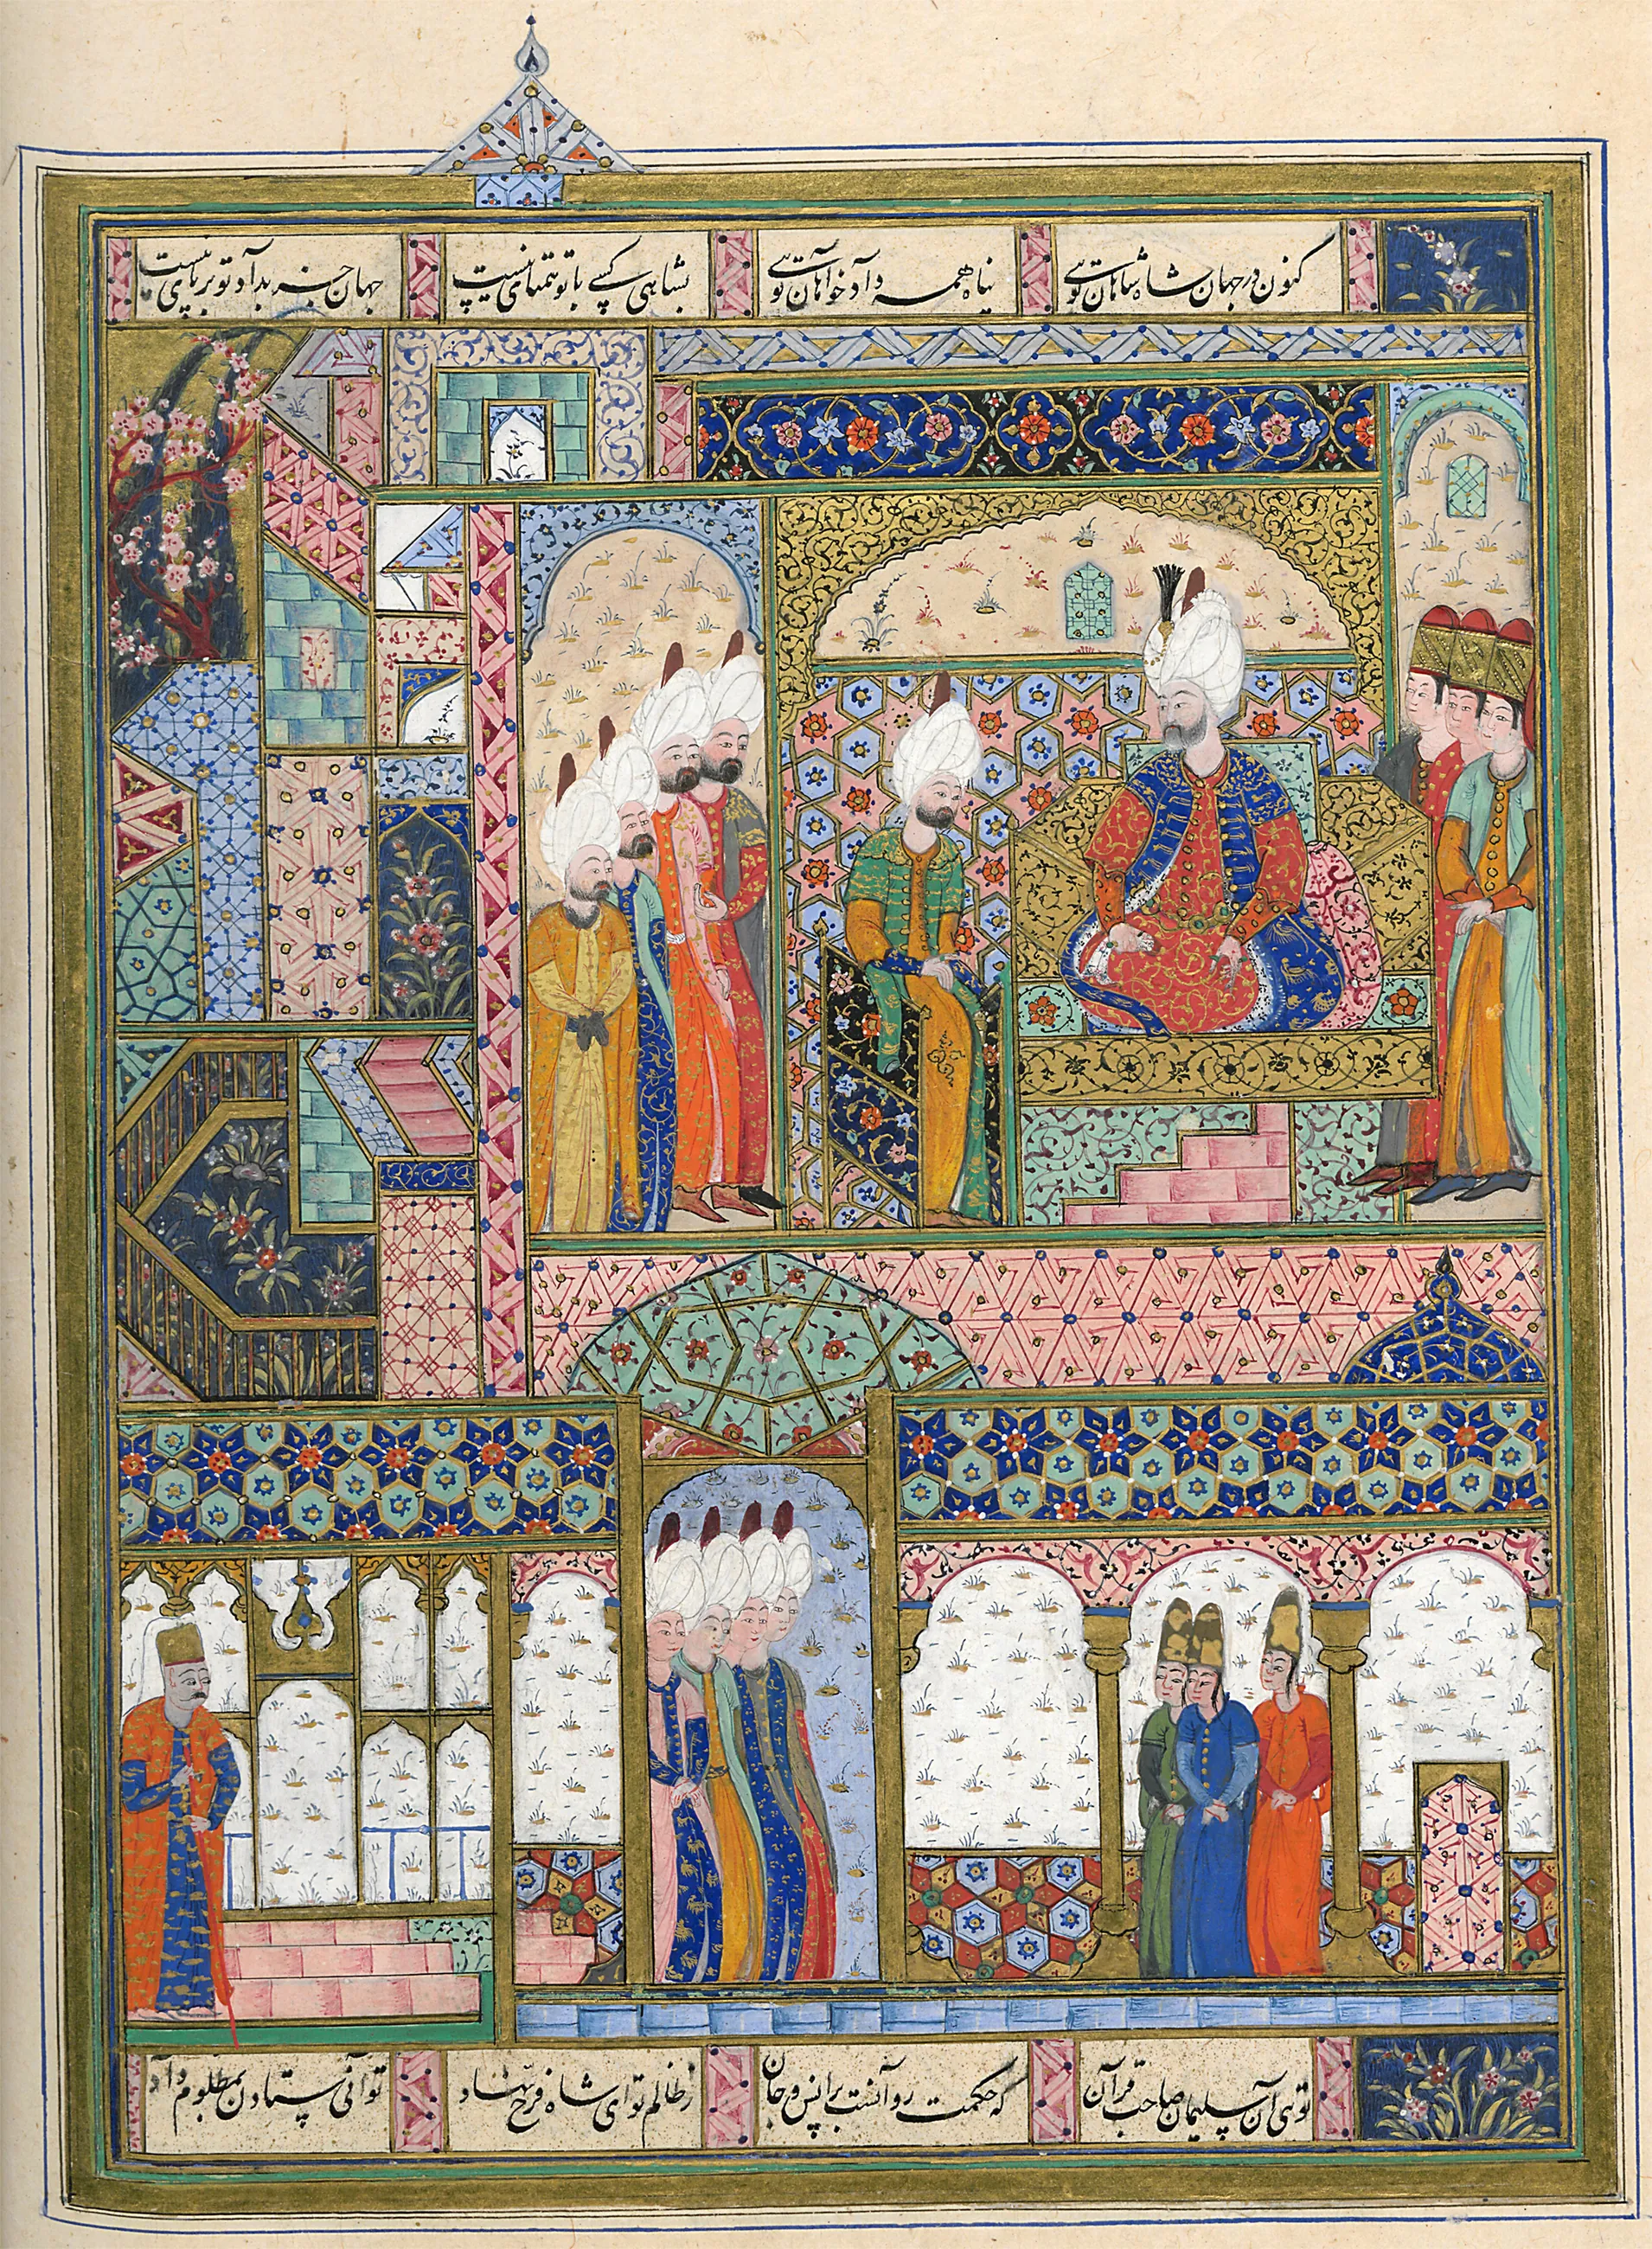 کنون در جهان شاه شاهان توئی
پناه همه دادخواهان توئی
بشاهی کسی با تو همتای نیست
جهان جز بداد تو برپای نیست
توئی آن سلیمان صاحب قران
که حکمت روانست بر انس و جان
ز ظالم تو ای شاه فرخ نهاد
توانی ستادن بمظلوم داد